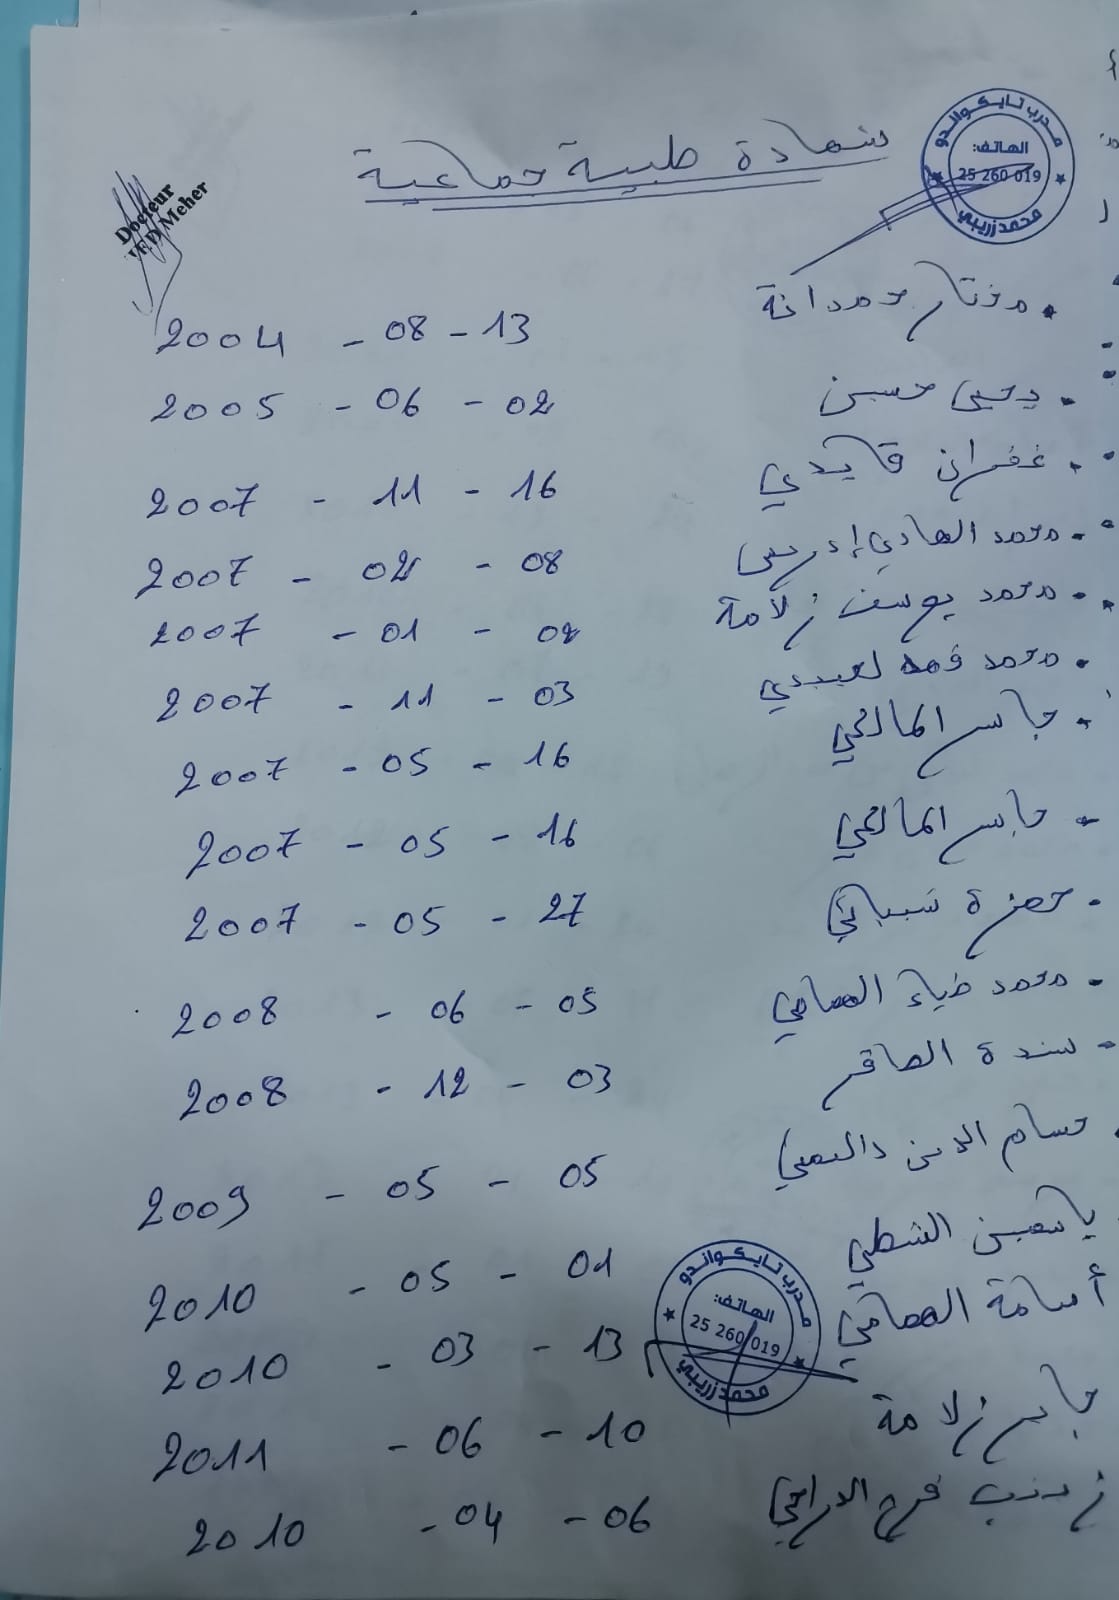 شهادة طبية جماعية
مدرب تايكواندو
الهاتف:
25 260 019
محمد زريبي
Docteur
Meher
مختار حمدانة 13 - 08 - 2004
يحيى حسين 02 - 06 - 2005
غفران قايدي 16 - 11 - 2007
محمد الهادي إدريس 08 - 02 - 2007
محمد يوسف زلامة 02 - 01 - 2007
محمد لعبيدي 03 - 11 - 2007
جاسر المالحي 16 - 05 - 2007
ياسر المالحي 16 - 05 - 2007
حمزة شيباني 27 - 05 - 2007
محمد ضياء العصامي 05 - 06 - 2008
سندة الصاقر 03 - 12 - 2008
حسام الدين 05 - 05 - 2009
ياسمين الشطي 01 - 05 - 2010
أسامة العصامي 13 - 03 - 2010
جاسر زلامة 10 - 06 - 2011
زينب فرح الدراجي 06 - 04 - 2010
مدرب تايكواندو
الهاتف:
25 260 019
محمد زريبي